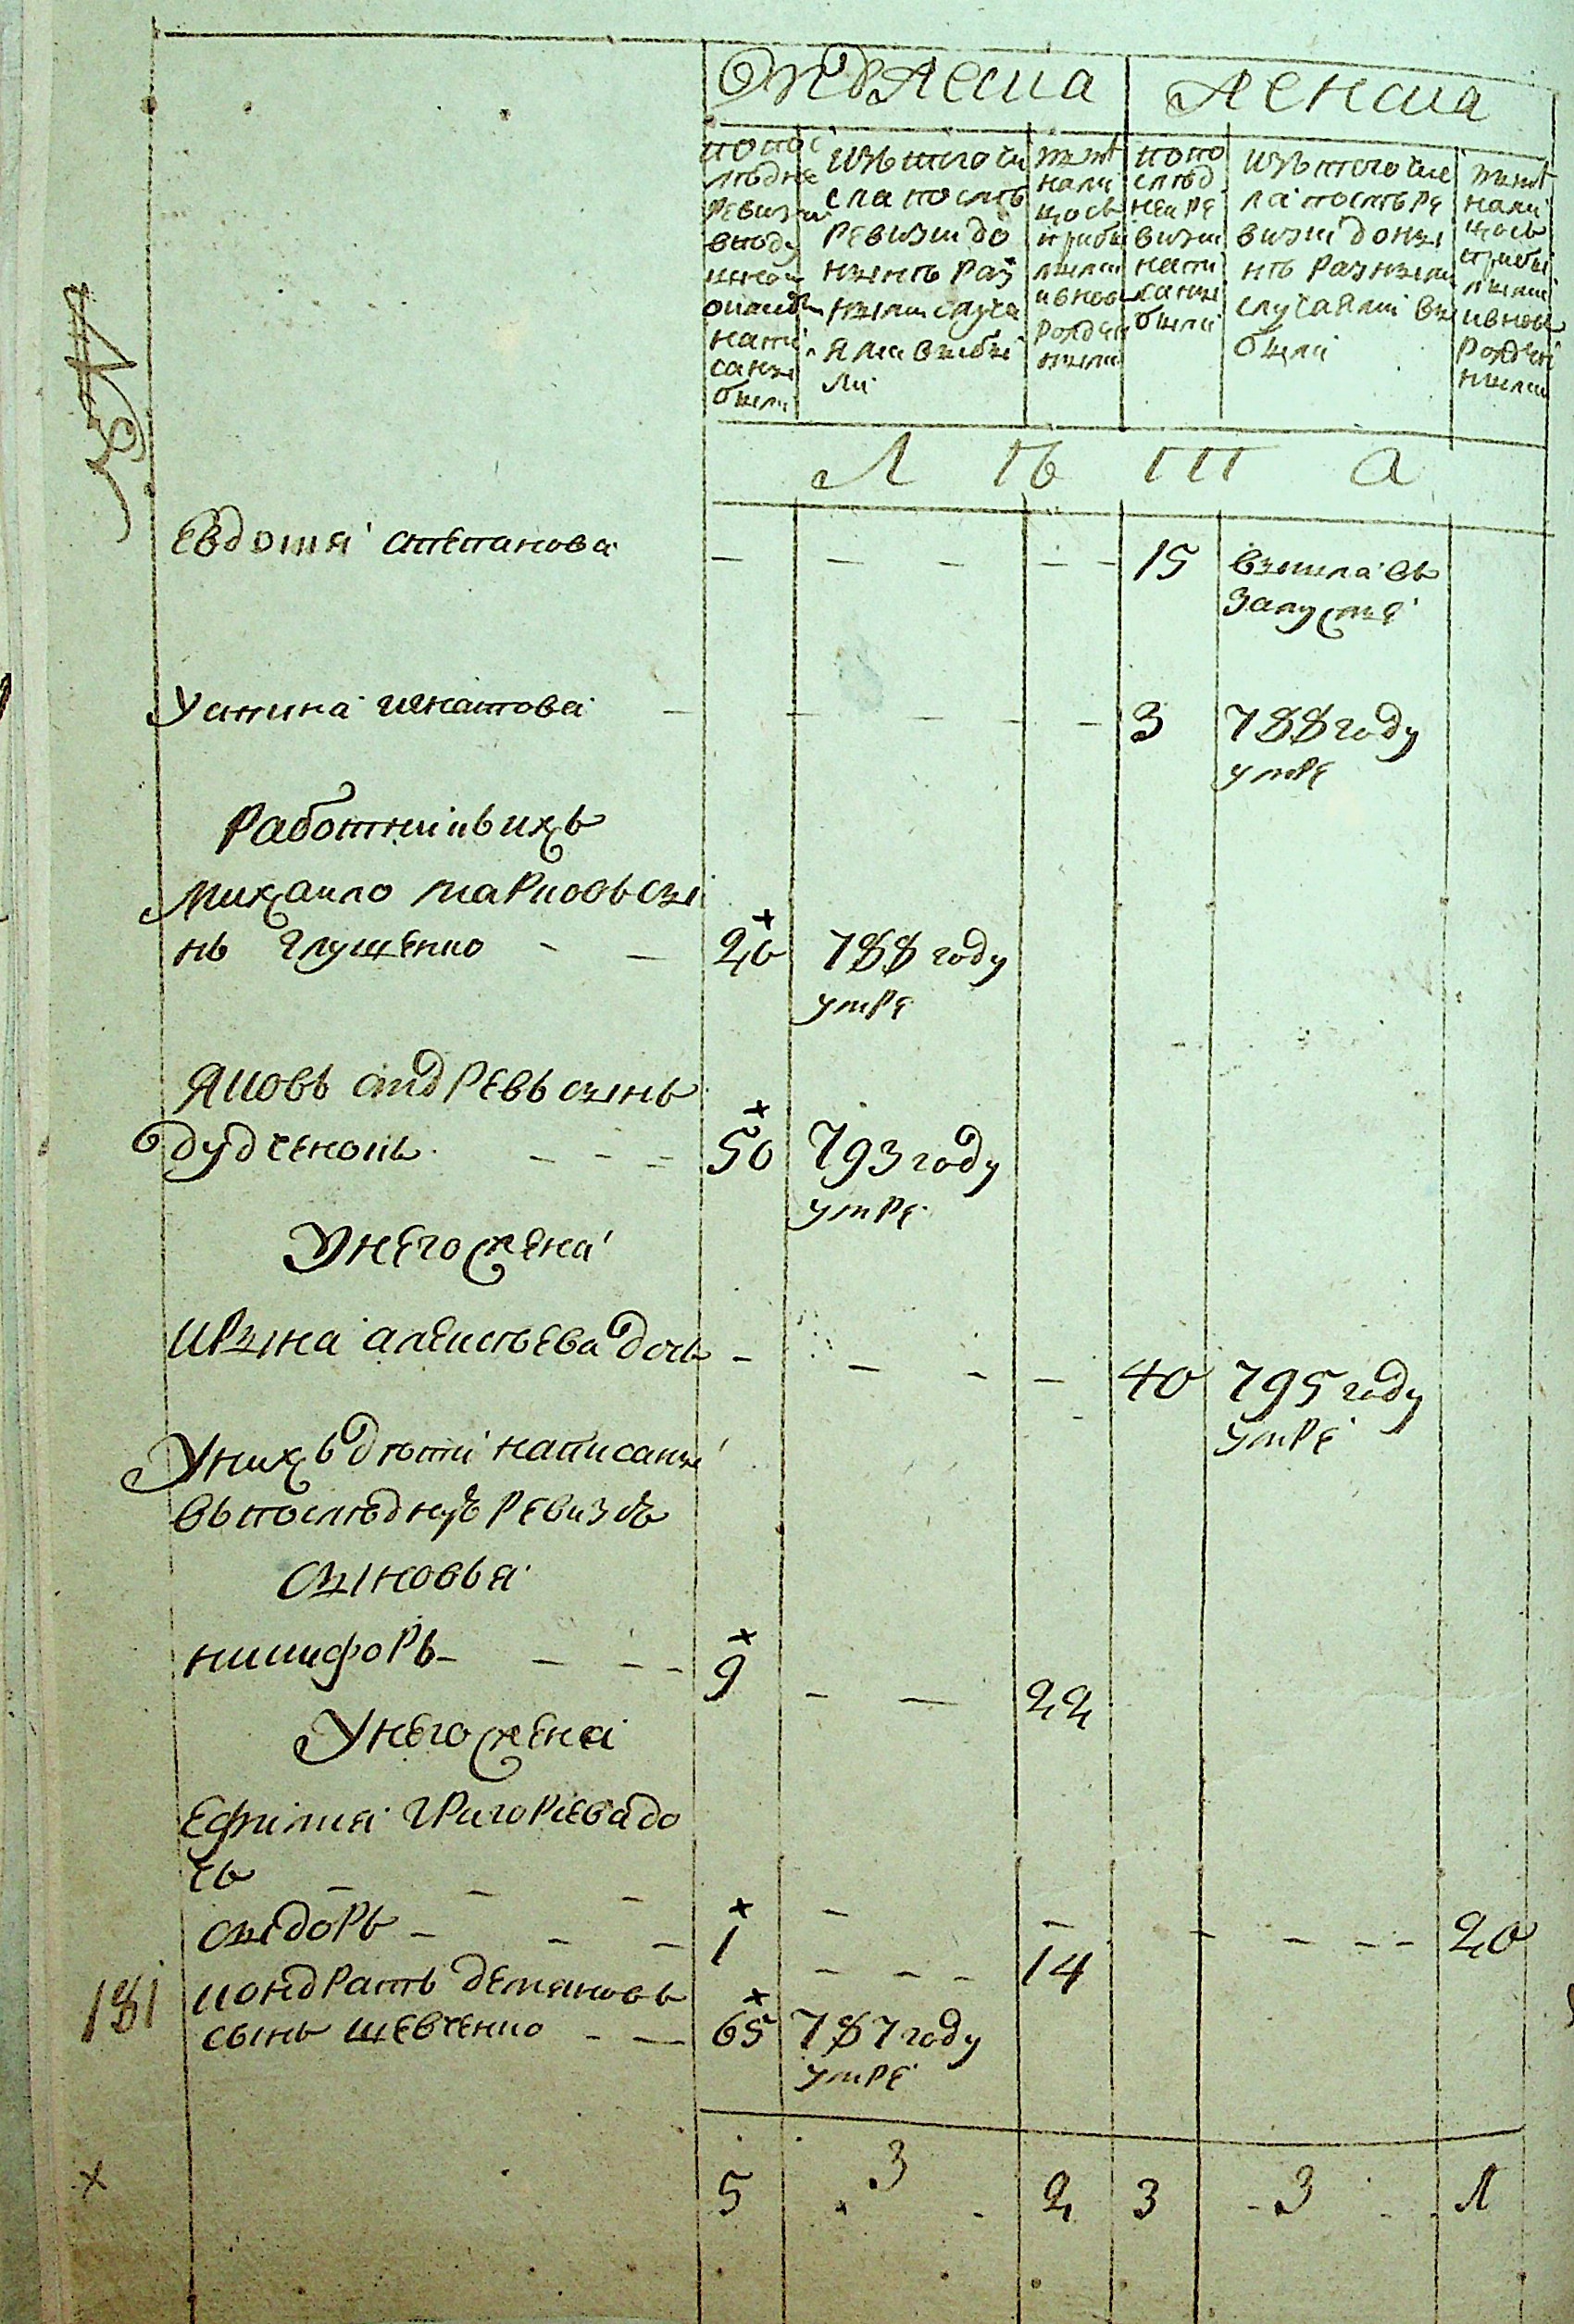 Мужеска женска
по пос
лѣдне
ревизи
въ 1782
написа
ны
были
изъ того чи
сла послѣ
ревизии до
нынѣ раз
ными случа
ями выбы
ли
нынѣ
нали
цо съ
прибы
лыми
и вновь
рожден
ными
по по
слѣд
ней ре
визии
напи
саны
были
изъ того чис
ла послѣ ре
визии доны
нѣ разными
случаями вы
были
нынѣ
нали
цо съ
прибы
лыми
и вновь
рожден
ными
Л ѣ т а
Евдокия степанова - - - - - 15 вышла въ
замужъе
Устина игнатова - - - - - 3 788 году
умре
Работники въ ихъ
Михаило марковъ сы
нъ глущенко - - 20 788 году
умре
Яковъ андревъ сынъ
дудченокъ - - - 50 793 году
умре
У него жена
Ирына алексѣева дочь - - - - 40 795 году
умре
У нихъ дѣти написаны
въ послѣдную ревизию
сыновья
никифоръ - - - - 9 - - 22
У него жена
Ефимия григориева до
чь - - - - - - - - - 20
сыдоръ - - - 1 - - - 14
181 кондратъ демяновъ
сынъ шевченко - - 65 787 году
умре
5 3 2 3 3 1